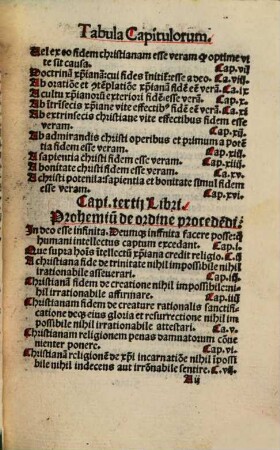 Tabula Capitulorum.
Uel ex eo fidem christianam esse veram q̃ optime vi
te sit causa. Cap.vij
Doctrinã xp̃ianã: cui fides innititur esse a deo. Ca.viij.
Ab oratiõe et cõtẽplatiõe xp̃ianã fidẽ eẽ verã. Ca.ix
A cultu xp̃ianorũ exteriori fidẽ esse verã. Ca.x
Ab ĩtrisecis xp̃iane vite effectibus fidẽ eẽ verã. Ca.xi
Ab extrinsecis christiane vite effectibus fidem esse
veram. Cap.xij.
Ab admirandis christi operibus et primum a potẽ
tia fidem esse veram. Cap.xiij.
A sapientia christi fidem esse veram. Cap.xiiij.
A bonitate christi fidem esse veram. Ca.xv.
A christi potentia: sapientia et bonitate simul fidem
esse veram. Cap.xvi.
Capi. tertij Libri.
Prohemiũ de ordine procedẽdi.
In deo esse infinita. Deumq; infinita facere posse: q̃
humani intellectus captum excedant. Cap.i.
Que supra hoĩs intellectũ xp̃iana credit religio. C.ij
A christiana fide de trinitate nihil impossibile nihil
irrationabile asseuerari. Cap.iij
Christianã fidem de creatione nihil impossibile: ni-
hil irrationabile affirmare. Cap.iiij
Christianam fidem de creature rationalis sanctifi-
catione decq; eius gloria et resurrectione nihil im
possibile nihil irrationabile attestari. Ca.v.
Christianam religionem penas damnatorum conue
nienter ponere. Cap.vi.
Christianã religionẽ de xp̃i incarnatiõe nihil ĩpossi
bile nihil indecens aut irrõnabile sentire. C.vij.
Aij